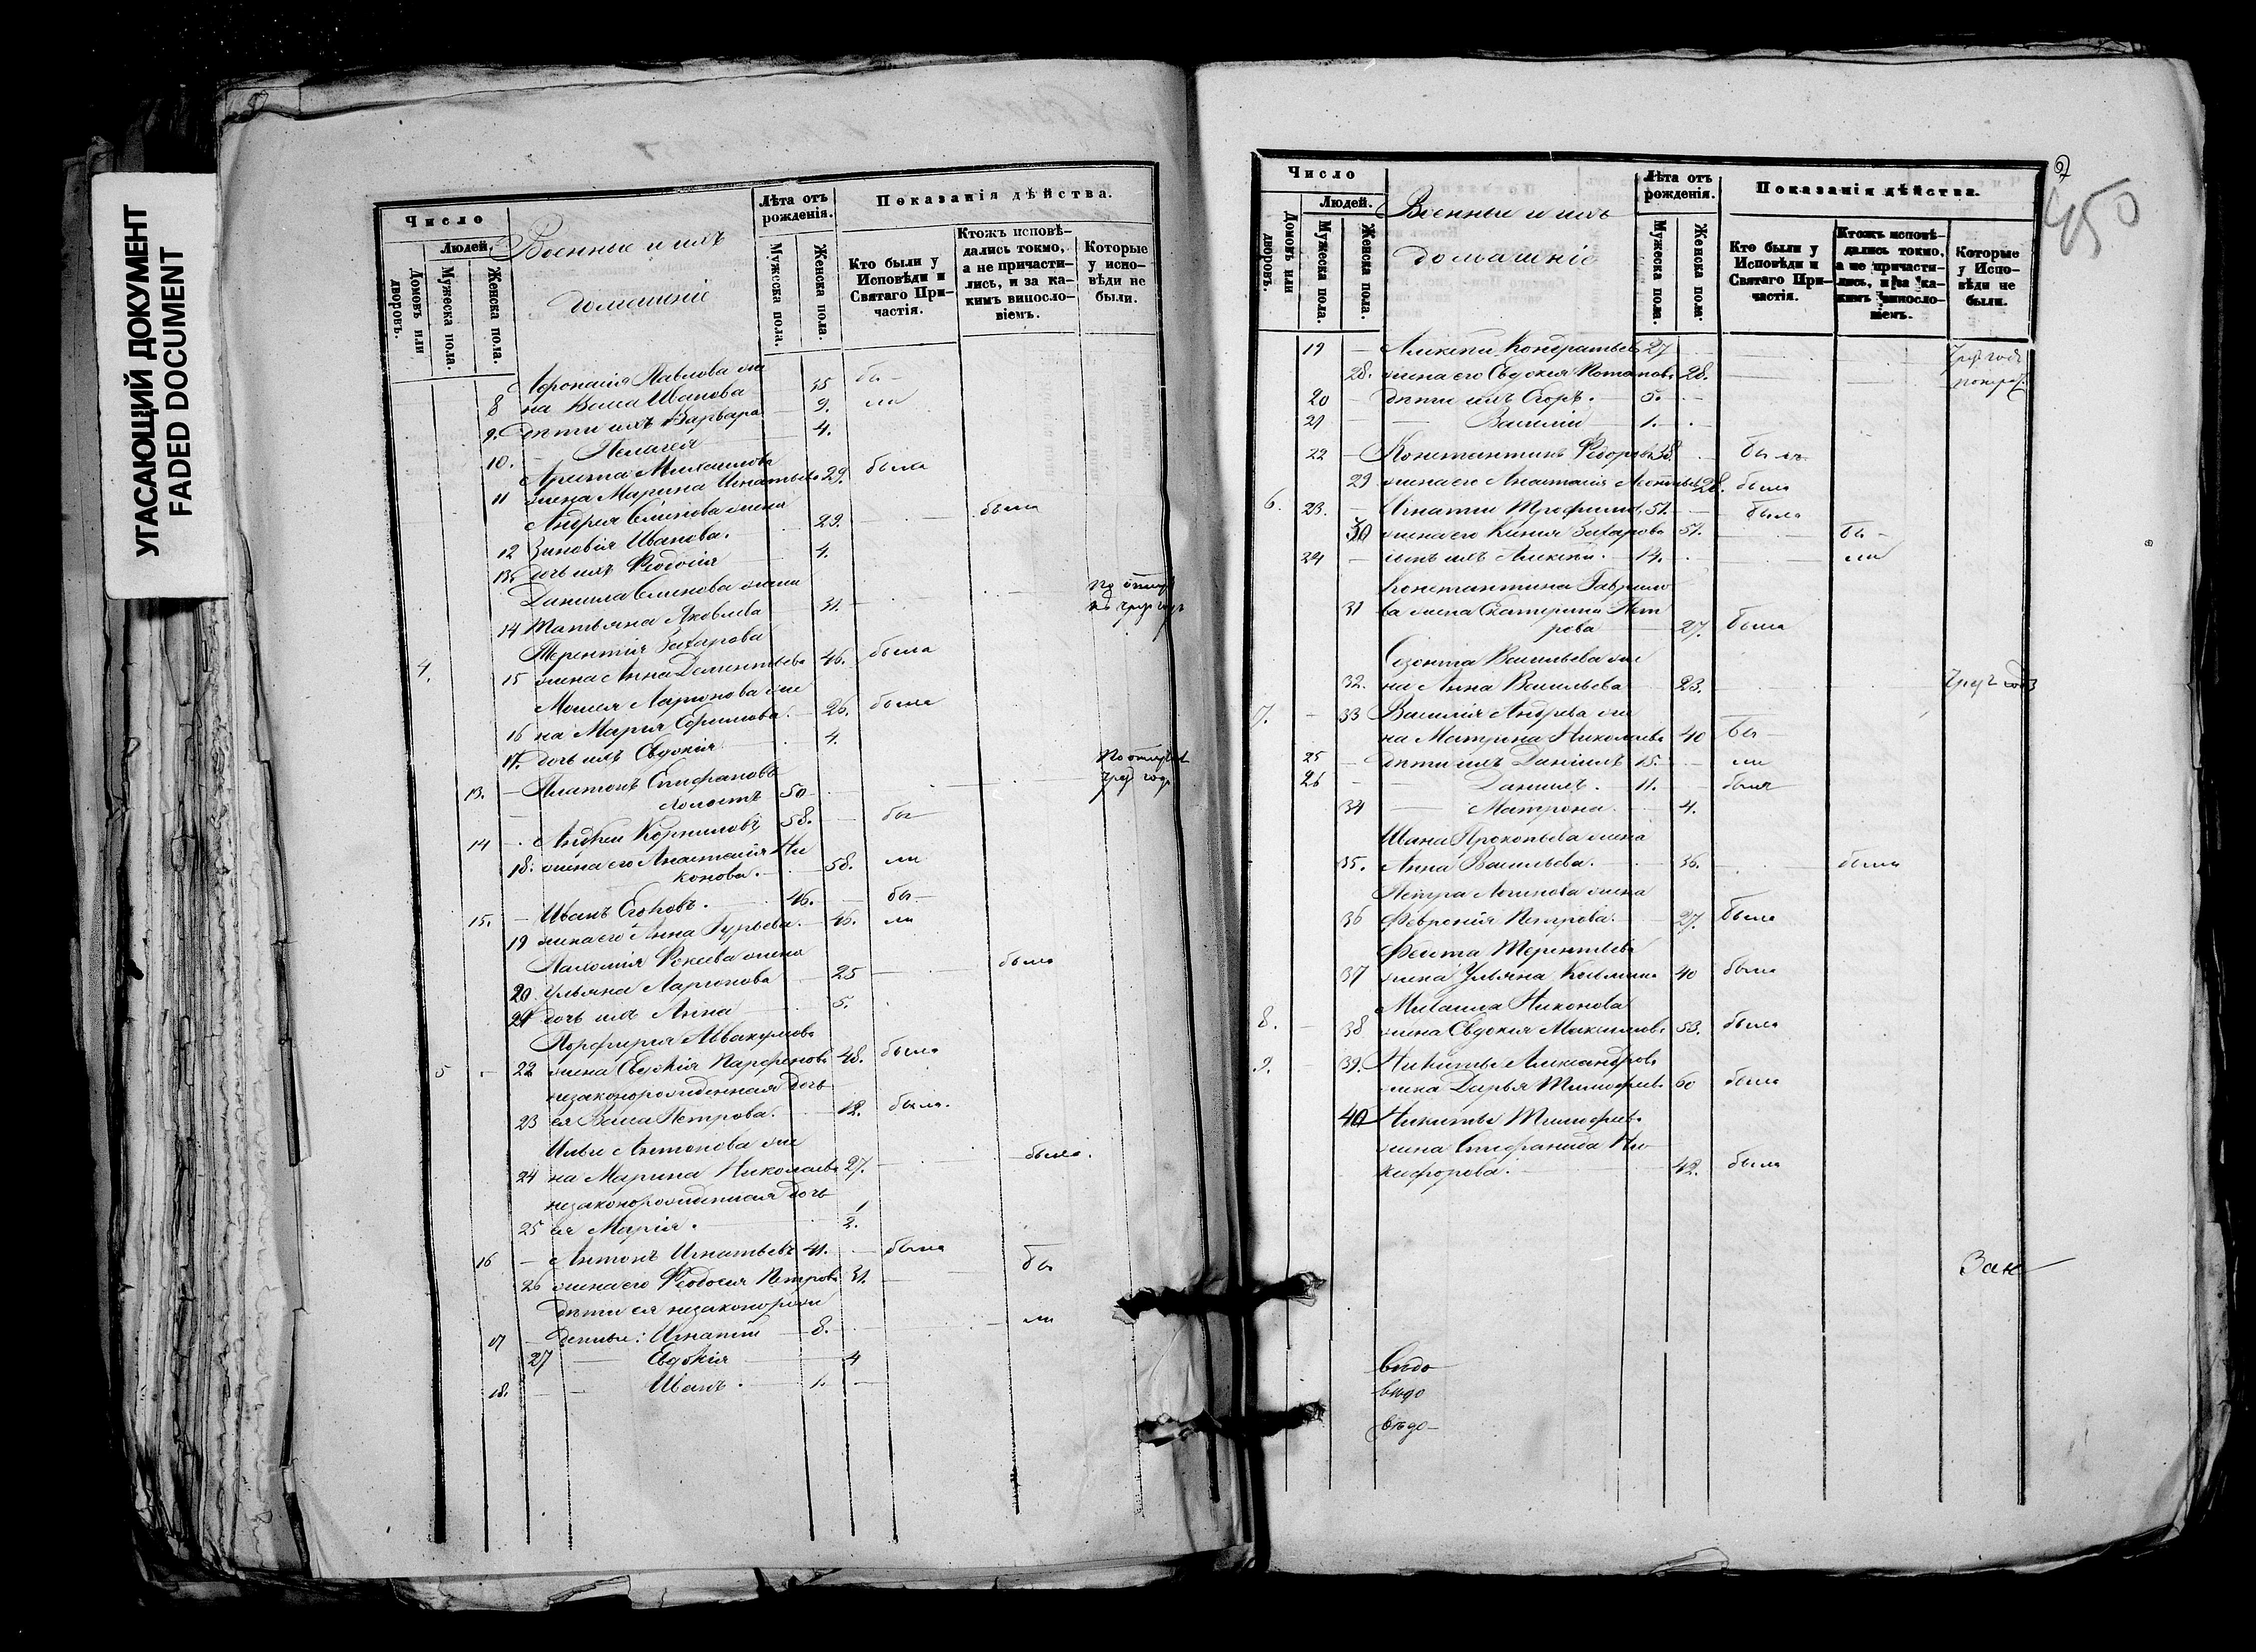 УГАСАЮЩИЙ ДОКУМЕНТ
FADED DOCUMENT
Число
Людей.
Домовъ или дворовъ.
Мужеска пола.
Женска пола.
Военные и ихъ
домашніе
Лѣта отъ рожденія.
Мужеска пола.
Женска пола.
Показанія дѣйства.
Кто были у Исповѣди и Святаго Причастія.
Ктожъ исповѣдались токмо, а не причастились, и за какимъ винословіемъ.
Которые у исповѣди не были.
Афонасія Павлова же
8 на Васса Иванова 35 бы-
9. дѣти ихъ Варвара 9. ли
10. Пелагея 4.
Михаилова
11 жена Марина Игнатьева 29. была
Андрея Семенова жена
12 Зиновія Иванова. 29. была
13. дочь ихъ Ѳеодосія 4.
Данила Семенова жена
14 Татьяна Яковлева 31.
Терентія Захарова
4. 15 жена Анна Дементьева 46. была
Моисея Ларіонова же
16 на Марья Ефимова. 26. была
17. дочь ихъ Евдокія 4.
13. Платонъ Епифановъ
холостъ 50
14 Андрей Корниловъ 58. бы
18. жена его Анастасія Ни
конова. 58. ли
15. Иванъ Егоровъ. 46. бы-
19 жена его Анна Гурьева. 46. ли
Пахомія Фокеева жена
20 Ульяна Ларіонова 25 была
21 дочь ихъ Анна 5.
Порфирія Аввакумова
5 22 жена Евдокія Парфенова 48. была
незаконорожденная дочь
23 ея Васса Петрова. 12. была.
Ильи Антонова же
24 на Марина Николаева 27. была.
незаконорожденная дочь
25 ея Марія. 1/2.
16 Антонъ Игнатьевъ 41. была
26 жена его Ѳеодосія Петрова 31. бы
дѣти ея незаконорож
17 денные: Игнатій 8. ли
27 Евдокія 4
18. Иванъ. 1.
450
Число
Людей.
Домовъ или дворовъ.
Мужеска пола.
Женска пола.
Военные и ихъ
домашніе
Лѣта отъ рожденія.
Мужеска пола.
Женска пола.
Показанія дѣйства.
Кто были у Исповѣди и Святаго Причастія.
Ктожъ исповѣдались токмо, а не причастились, и за какимъ винословіемъ.
Которые у Исповѣди не были.
19 Алексѣй Кондратьевъ 27
28. жена его Евдокія Потапова 28.
20 дѣти ихъ Егоръ. 5.
21 Василій 1.
22 Константинъ Ѳедоровъ 38. былъ
29 жена его Анастасія Леонтьева 28. была
6. 23. Игнатій Трофимовъ 51. была
30 жена его Ксенія Захарова 51. бы-
24 сынъ ихъ Алексѣй. 14. ли
Константина Гаврило
31 ва жена Екатерина Пет
рова 27. была
Созонта Васильева же
32. на Анна Васильева 23.
7. 33 Василія Андреева же
на Матрена Николаева 40 бы-
25 дѣти ихъ Даніилъ 15. ли
26 Данилъ. 11. былъ
34 Матрона. 4.
Ивана Прокопьева жена
35. Анна Васильева. 36. была
Петра Логинова жена
36 Февронія Петрова. 27. была
Ѳеокта Терентьева
37 жена Ульяна Козьмина 40 была
Михаила Никонова
8. 38 жена Евдокія Максимова 53. была
9. 39. Никиты Александрова
жена Дарья Тимофеева 60 была
40 Никиты Тимофеева
жена Стефанида Ни
кифорова. 42. была
Зак
вѣдо
вѣдо
вѣдо